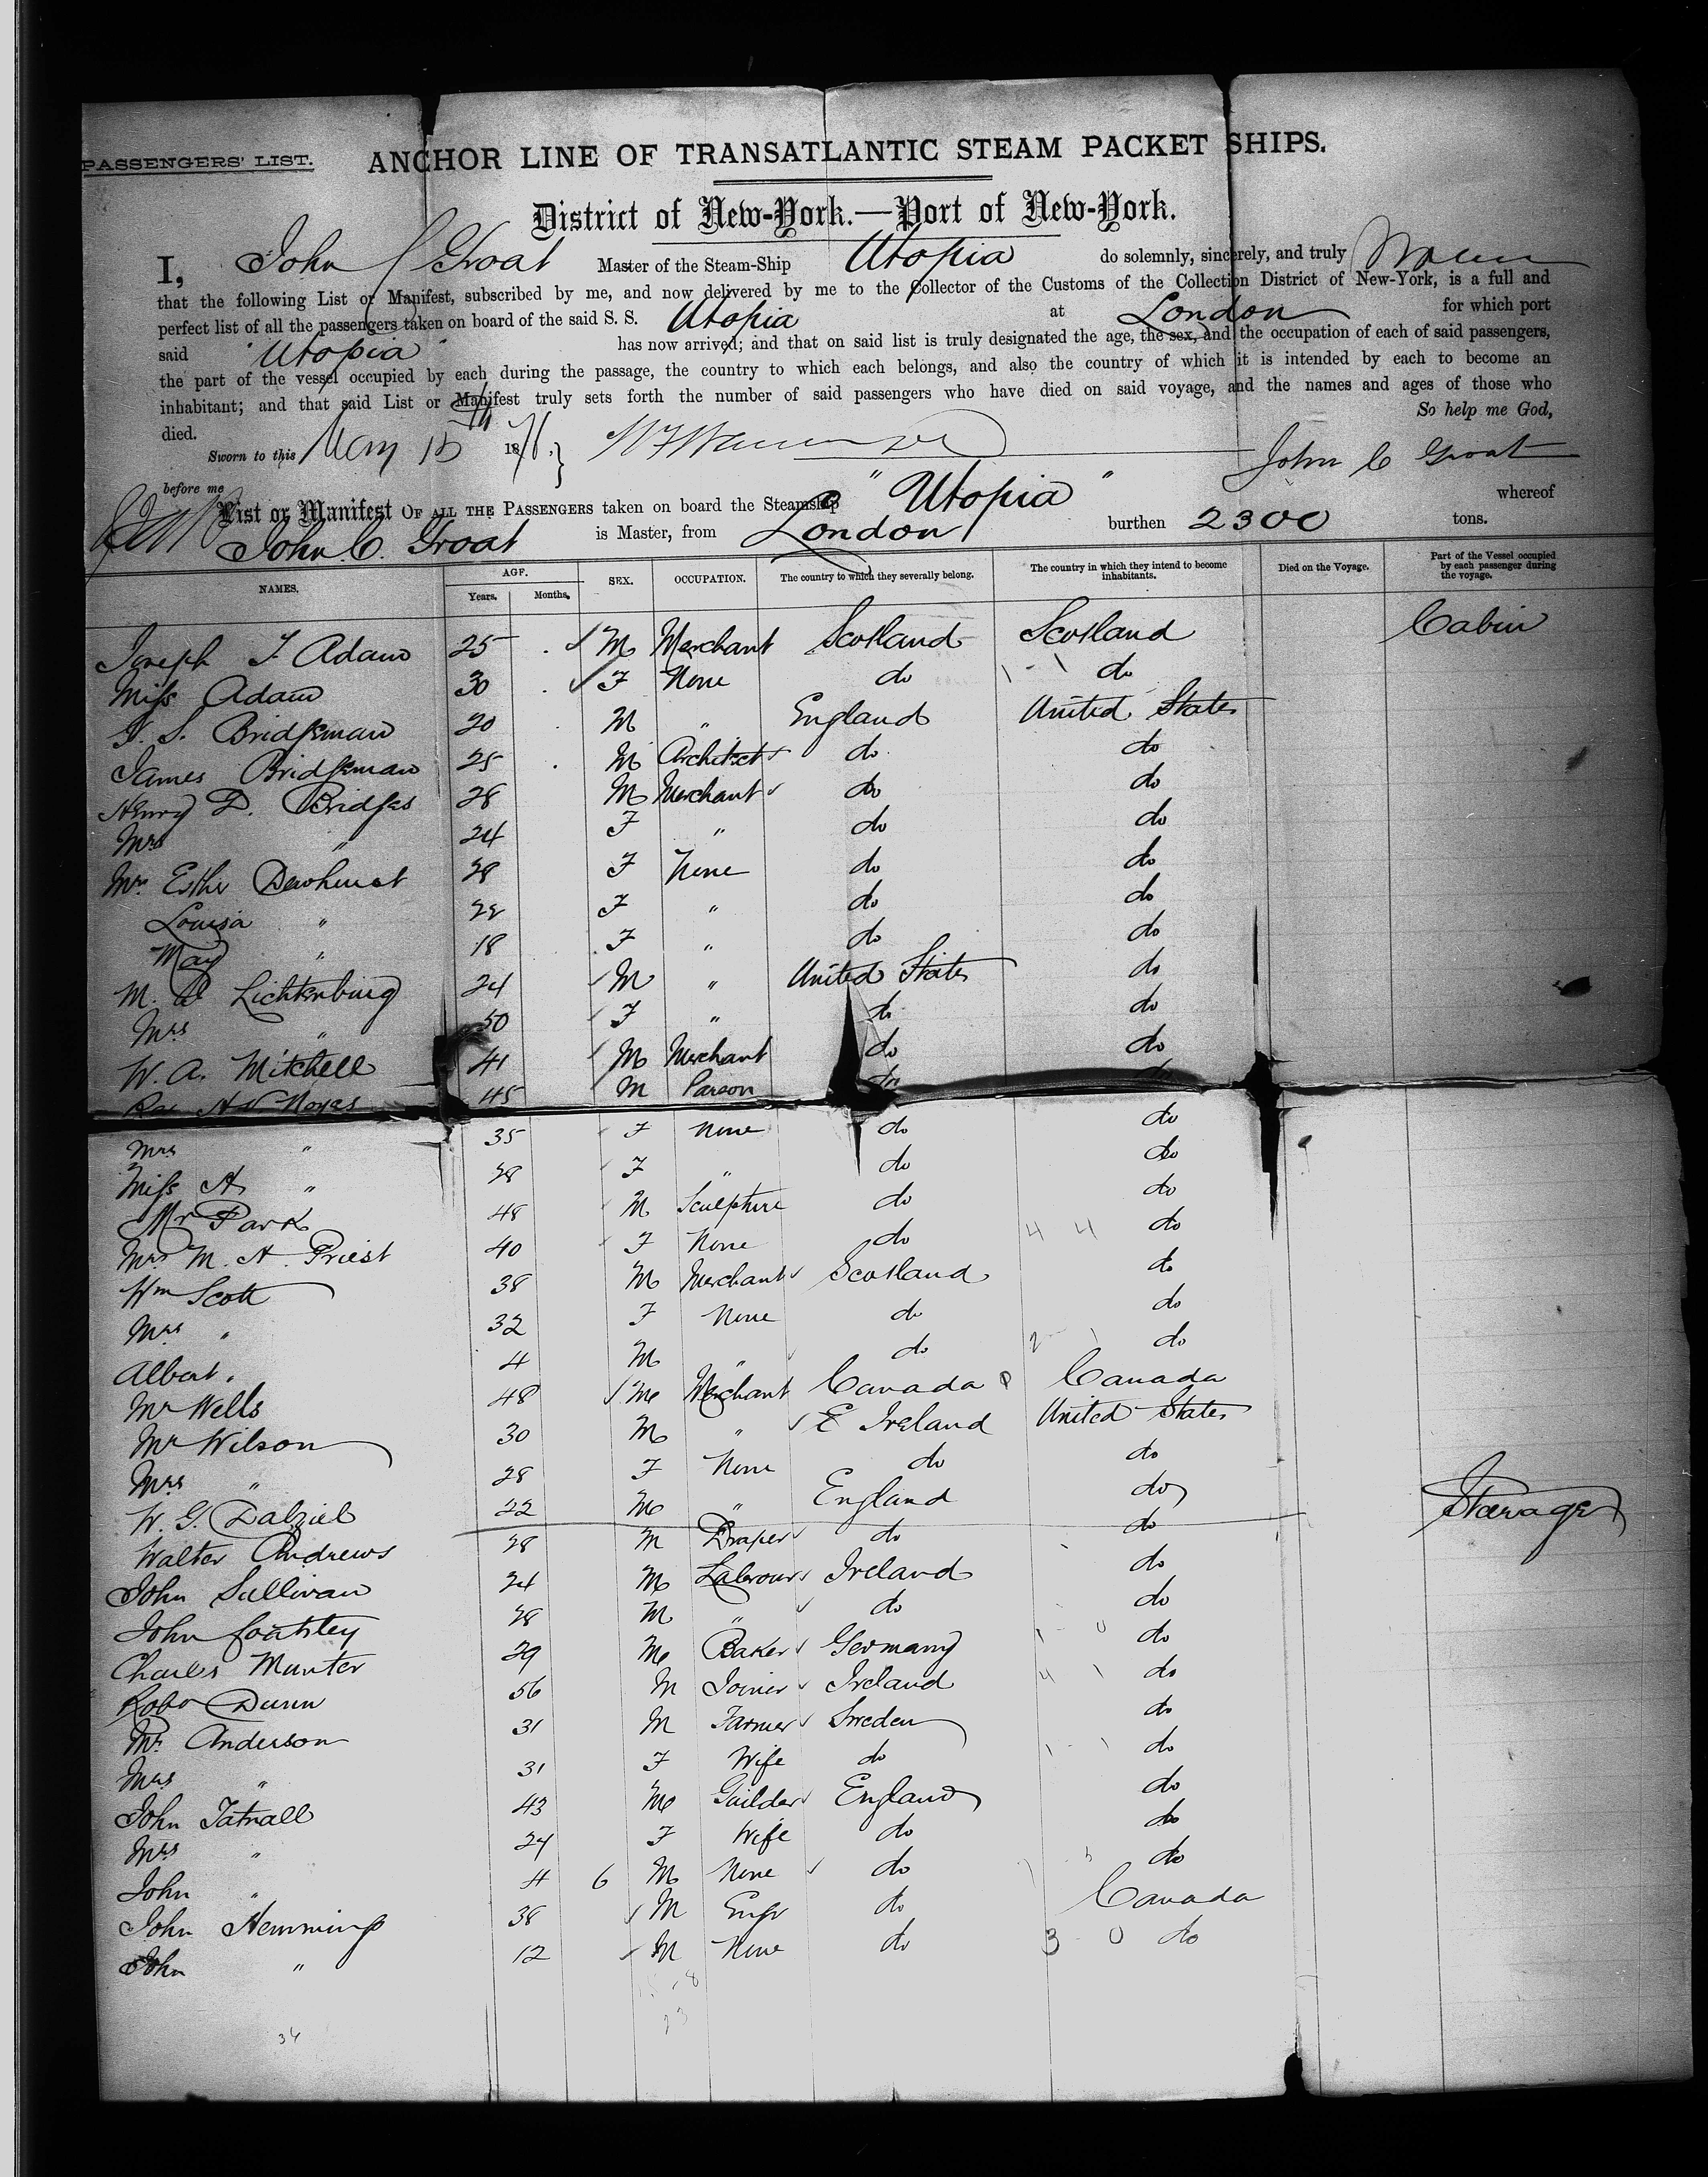 PASSENGERS' LIST. ANCHOR LINE OF TRANSATLANTIC STEAM PACKET SHIPS.
District of New-York.—Port of New-York.
I, John C Groat Master of the Steam-Ship Utopia do solemnly, sincerely, and truly
that the following List or Manifest, subscribed by me, and now delivered by me to the Collector of the Customs of the Collection District of New-York, is a full and
perfect list of all the passengers taken on board of the said S. S. Utopia at London for which port
said "Utopia" has now arrived; and that on said list is truly designated the age, the sex, and the occupation of each of said passengers,
the part of the vessel occupied by each during the passage, the country to which each belongs, and also the country of which it is intended by each to become an
inhabitant; and that said List or Manifest truly sets forth the number of said passengers who have died on said voyage, and the names and ages of those who
died. So help me God,
Sworn to this May 15 1876. John C Groat
before me
List or Manifest OF ALL THE PASSENGERS taken on board the Steamship "Utopia" whereof
John C. Groat is Master, from London burthen 2300 tons.
NAMES. AGE. Years. Months. SEX. OCCUPATION. The country to which they severally belong. The country in which they intend to become inhabitants. Died on the Voyage. Part of the Vessel occupied by each passenger during the voyage.
Joseph F Adam 25 M Merchant Scotland Scotland Cabin
Miss Adam 30 F None do do
G. S. Bridgman 20 M " England United States
James Bridgman 25 M Architect do do
Henry D. Bridges 28 M Merchant do do
Mrs " 24 F " do do
Mrs Esther Dewhurst 28 F None do do
Louisa " 22 F " do do
May " 18 F " do do
M. Lichtenburg 24 M " United States do
Mrs " 50 F " do do
W. A. Mitchell 41 M Merchant do do
Rev Noyes 45 M Parson do do
Mrs " 35 F None do do
Miss A " 28 F " do do
Mr Park 48 M Sculpture do do
Mrs M. A. Priest 40 F None do 4 4 do
Wm Scott 38 M Merchant Scotland do
Mrs " 32 F None do do
Albert " 4 M " do do
Mr Wells 48 M Merchant Canada Canada
Mr Wilson 30 M " Ireland United States
Mrs " 28 F None do do
W. G. Dalziel 22 M " England do
Walter Andrews 28 M Draper do do Steerage
John Sullivan 24 M Labrour Ireland do
John 28 M " do do
Charles Munter 29 M Baker Germany do
Robt Dunn 56 M Joiner Ireland do
Mr Anderson 31 M Farmer Sweden do
Mrs " 31 F Wife do do
John Tatnall 43 M Guilder England do
Mrs " 24 F Wife do do
John " 4 6 M None do do
John Hemming 38 M Engr do Canada
John " 12 M None do 3 0 do
34
23